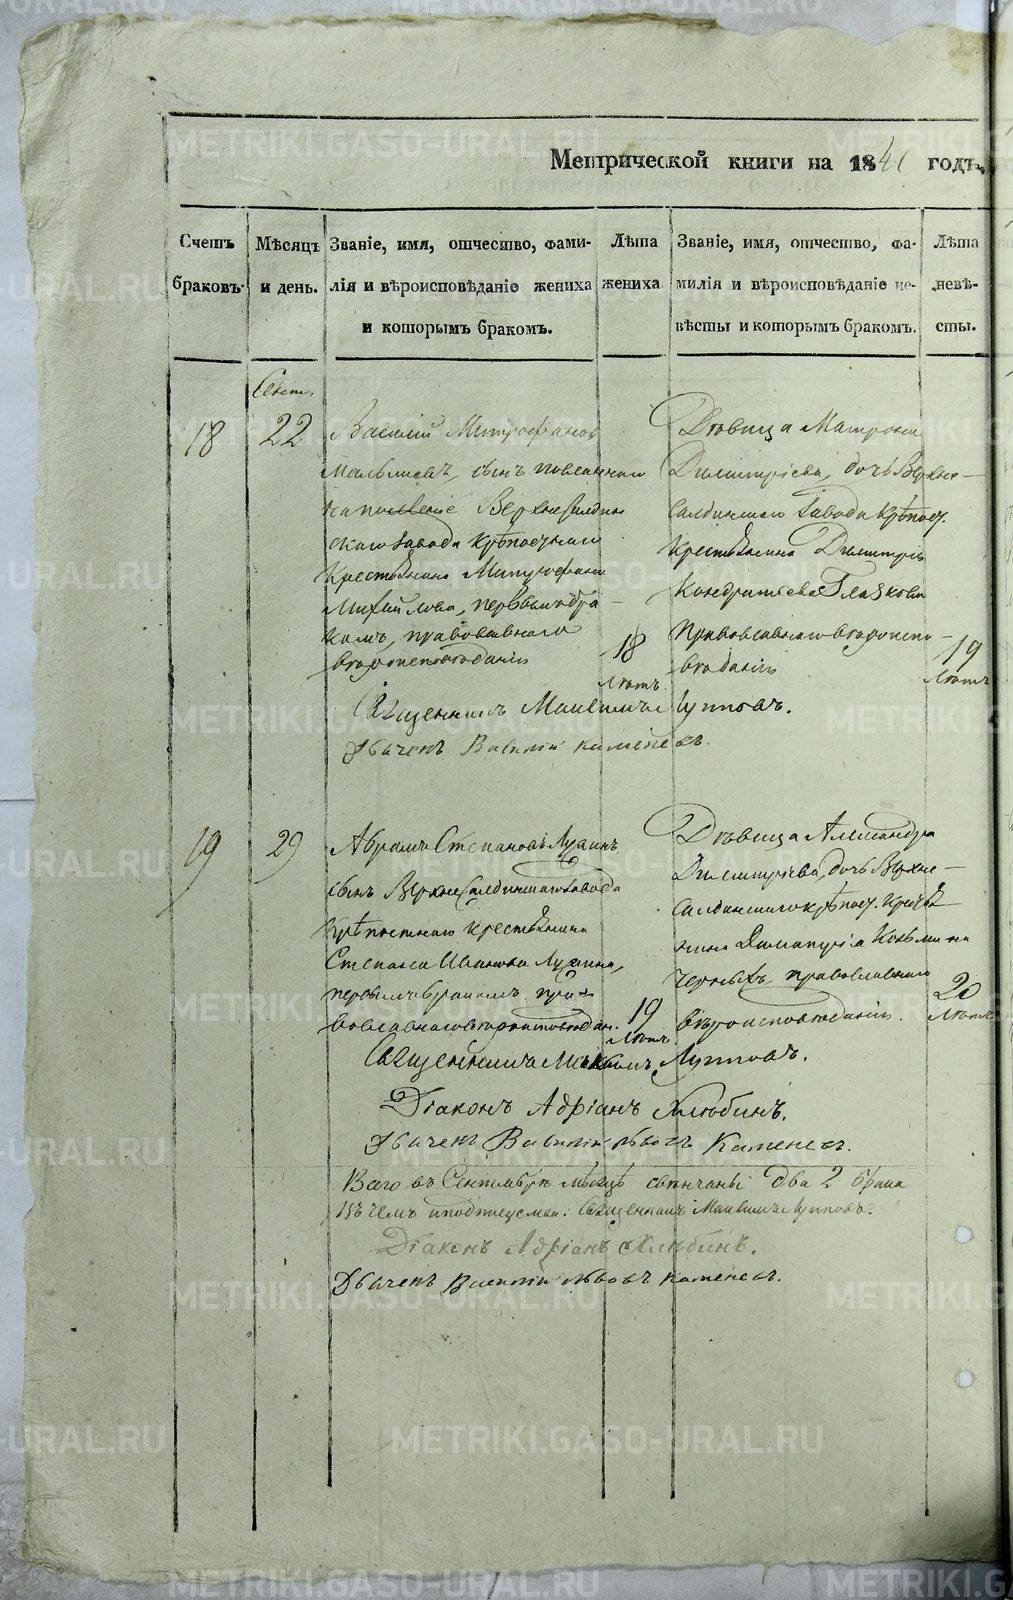 Метрической книги на 184 годъ,
Счетъ браковъ.
Мѣсяцъ и день.
Званіе, имя, отчество, фами-
лія и вѣроисповѣданіе жениха
и которымъ бракомъ.
Лѣта
жениха
Званіе, имя, отчество, фа-
милія и вѣроисповѣданіе не-
вѣсты и которымъ бракомъ.
Лѣта
невѣ-
сты.
Сент.
18
22
Василій Митрофановъ
сынъ
Верхнесалдин
скаго завода крѣпостнаго
Крестьянина Митрофана
Михайлова, первымъ бра-
комъ, православнаго
вѣроисповѣданія
18
лѣтъ
Дѣвица Матрона
Димитріева, дочь Верхне-
салдинскаго завода крѣпост.
Крестьянина Димитрія
Кондратьева Глазкова
Православнаго вѣроиспо-
вѣданія
19
лѣтъ
Священникъ Максимъ Лупповъ.
Дьячекъ Василій Каменевъ.
19
29
Абрамъ Степановъ Лузинъ
сынъ Верхнесалдинскаго завода
Крѣпостнаго Крестьянина
Степана Иванова Лузина,
первымъ бракомъ, пра-
вославнаго вѣроисповѣдан.
19
лѣтъ
Дѣвица Александра
Димитріева, дочь Верхне-
салдинскаго крѣпост. крестья
нина Димитрія Козьмина
Черныхъ, православнаго
вѣроисповѣданія.
20
лѣтъ
Священникъ Максимъ Лупповъ.
Діаконъ Адріанъ Хлюбинъ.
Дьячекъ Василій Львовъ Каменевъ.
Всего въ Сентябрѣ мѣсяцѣ свѣнчаны два 2 брака
въ чемъ и подписуемся: Священникъ Максимъ Лупповъ.
Діаконъ Адріанъ Хлюбинъ.
Дьячекъ Василій Львовъ Каменевъ.
METRIKI.GASO-URAL.RU